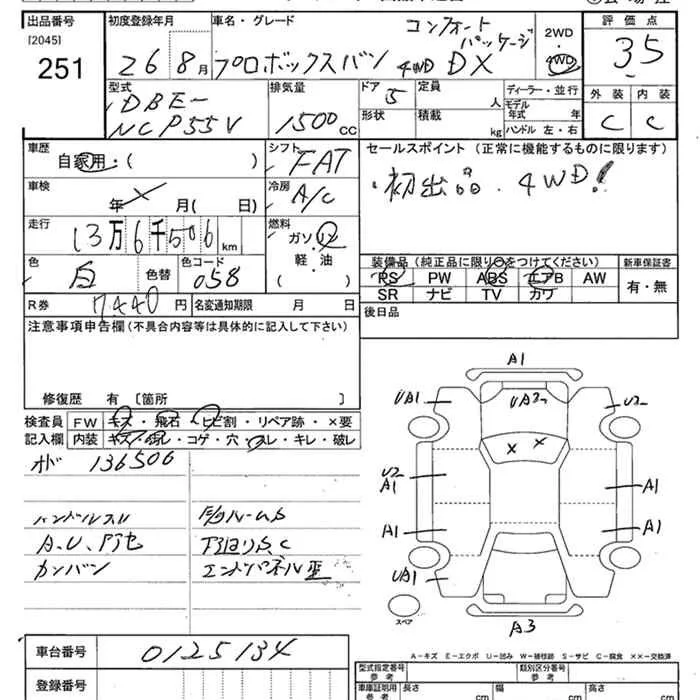 出品番号
[2045]
251
初度登録年月
26 8月
車名・グレード
コンフォート
パッケージ
プロボックスバン 4WD DX
2WD
4WD
評価点
3.5
外装 内装
C C
型式
DBE-
NCP55V
排気量
1500cc
ドア
5
形状
定員
人
積載
kg
ディーラー・並行
モデル
年式 年
ハンドル 左・右
車歴
自家用・( )
シフト
FAT
車検
年 月( 日)
冷房
A/C
走行
13万6千506km
燃料
ガソリン
軽・油
( )
色
白
色替
色コード
058
R券
7440円
名変通知期限 月 日
セールスポイント(正常に機能するものに限ります)
・初出品.4WD!
装備品(純正品に限り○をつけてください)
PS PW ABS エアB AW
SR ナビ TV カワ
新車保証書
有・無
後日品
注意事項申告欄(不具合内容等は具体的に記入して下さい)
修復歴 有 〔箇所 〕
検査員
記入欄
FW キズ・飛石・ヒビ割・リペア跡・×要
内装 キズ・汚れ・コゲ・穴・スレ・キレ・破レ
136506
ハンドルスレ
カンバン
A1
UA1
UA2
U2
U2
A1
A1
A1
A1
UA1
A3
スペア
A-キズ E-エクボ U-凹み W-補修跡 S-サビ C-腐食 ××-交換済
車台番号
0125134
登録番号
型式指定番号
参考
類別区分番号
参考
車庫証明用
参考
長さ
cm
幅
cm
高さ
cm